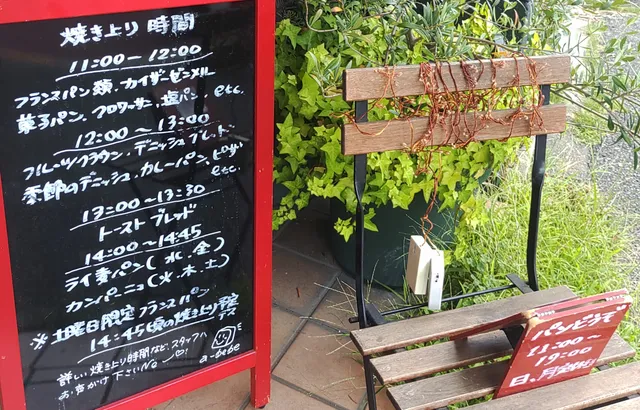 焼き上り時間
11:00－12:00
フランスパン類、カイザーゼンメル
菓子パン、クロワッサン、塩パン etc.
12:00～13:00
フルーツクラウン・デニッシュブレッド
季節のデニッシュ・カレーパン、ピザ etc
13:00～13:30
トーストブレッド
14:00～14:45
ライ麦パン(水、金)
カンパーニュ(火、木、土)
※土曜日限定フランスパン
14:45頃の焼き上り予定デス
詳しい焼き上り時間など、スタッフへ
お声かけ下さい
a-bebe
パンビラモ
11:00～
19:00
日、月定休